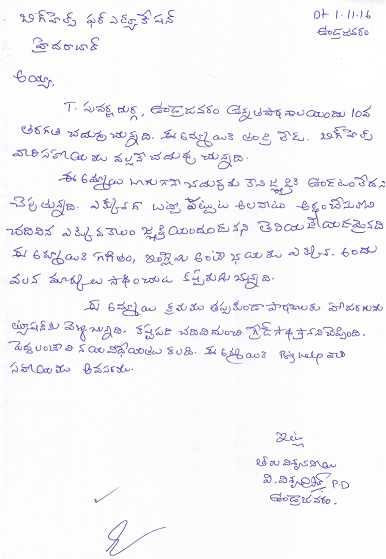 బిగ్ హెల్ప్ ఫర్ ఎడ్యుకేషన్
హైదరాబాద్
Dt 1-11-16
ఉండ్రాజవరం
అయ్యా,
T. సువర్ణ దుర్గ, ఉండ్రాజవరం ఉన్నత పాఠశాలయందు 10వ
తరగతి చదువుచున్నది. ఈ అమ్మాయికి తండ్రి లేడు. బిగ్ హెల్ప్
వారి సహాయము వల్లనే చదువుచున్నది.
ఈ అమ్మాయి బాగుగానే చదువును కాని జ్ఞప్తికి ఉండటంలేదని
చెప్పుతున్నది. ఎక్కువగా బట్టీ పట్టుట అలవాటు అర్థం చేసుకొని
చదివిన ఎక్కువకాలం జ్ఞప్తియందుండునని తెలియచేయడమైనది
ఈ అమ్మాయికి గణితం, ఇంగ్లీషు అంటే భయము ఎక్కువ. అందు
వలన మార్కులు సాధించుట కష్టమగుచున్నది.
ఈ అమ్మాయి క్రమము తప్పకుండా పాఠశాలకు హాజరగును
ట్యూషన్ కు వెళ్తున్నది. కష్టపడి చదివి మంచి గ్రేడ్ సాధిస్తానని చెప్పింది.
పెద్దలంటే వినయవిధేయతలు కలది. ఈ అమ్మాయికి Big help వారి
సహాయము అవసరము.
ఇట్లు
తమ విశ్వసనీయ
P.D
ఉండ్రాజవరం.